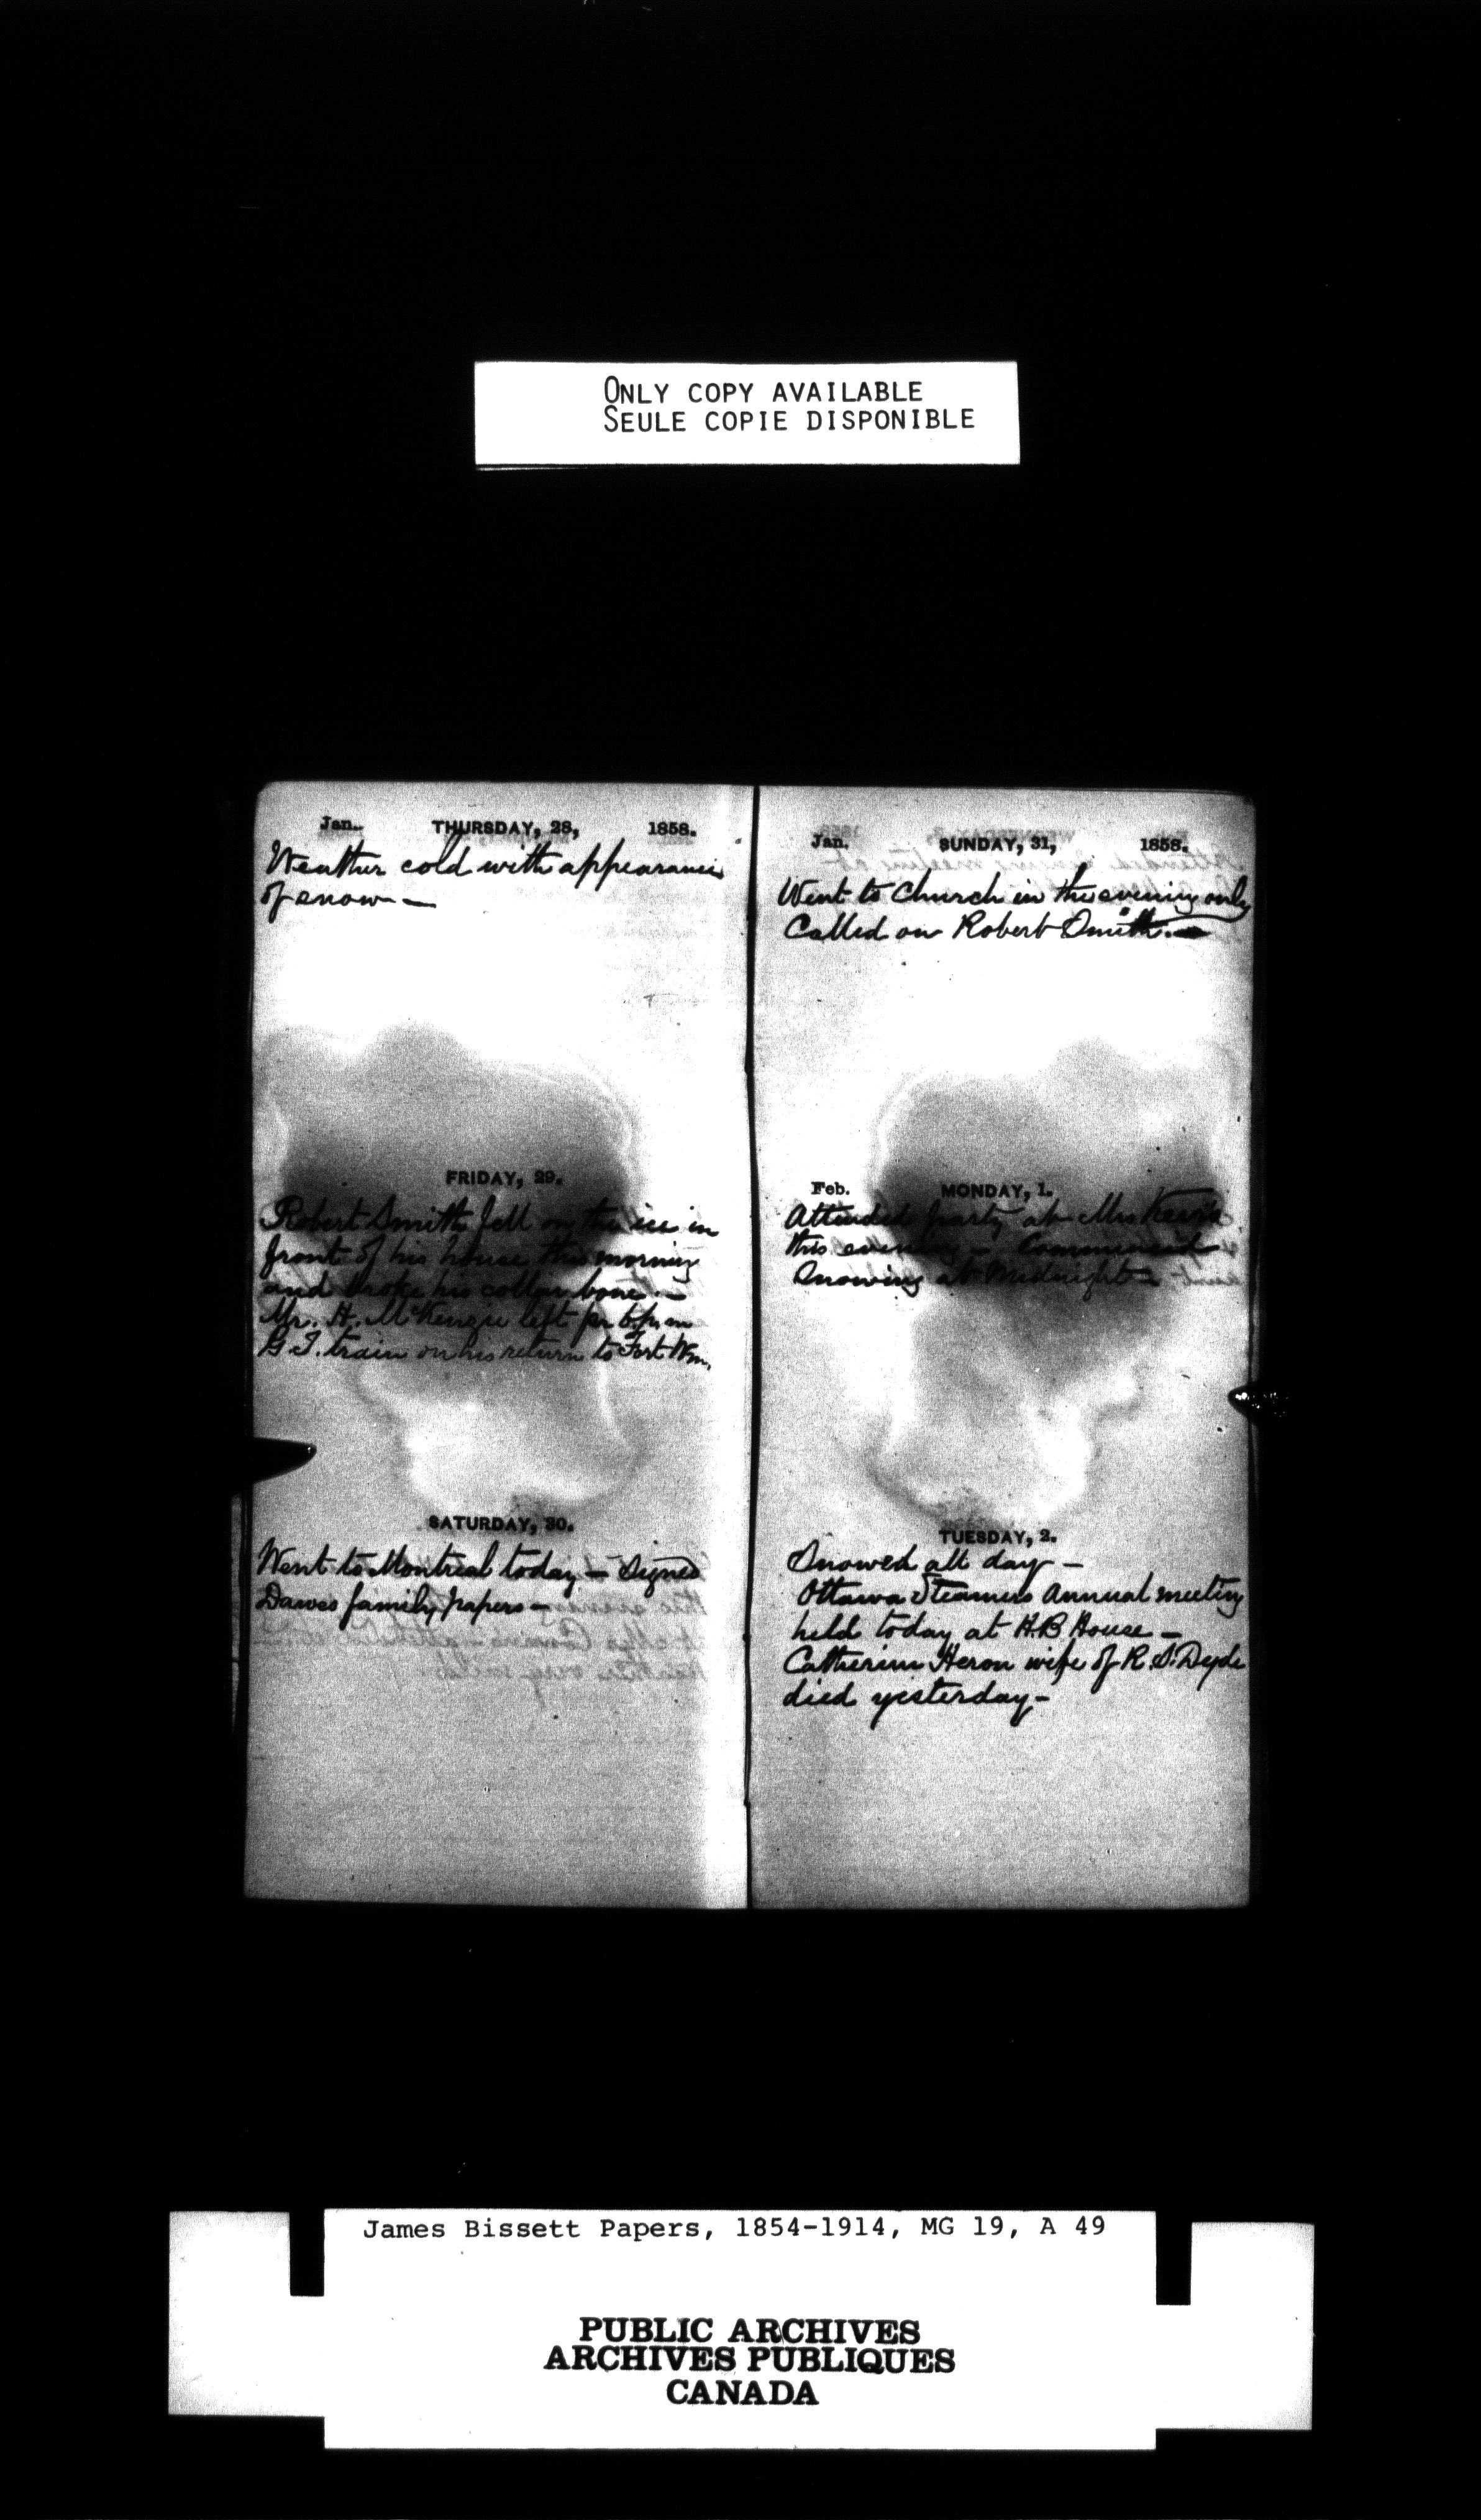 ONLY COPY AVAILABLE
SEULE COPIE DISPONIBLE
Jan. THURSDAY, 28, 1858.
Weather cold with appearance
of snow —
FRIDAY, 29.
Robert Smith fell on the ice in
front of his house this morning
and broke his collar bone —
Mr. H. McKenzie left per 6 p.m
G T. train on his return to Fort Wm.
SATURDAY, 30.
Went to Montreal today — Signed
Dawes family papers —
Jan. SUNDAY, 31, 1858.
Went to Church in the evening only
Called on Robert Smith. —
Feb. MONDAY, 1.
Attended party at Mrs
this evening — Commenced
Snowing at Midnight —
TUESDAY, 2.
Snowed all day —
Ottawa Steamers Annual meeting
held today at H.B House —
Catherine Heron wife of R. S. Dyde
died yesterday —
James Bissett Papers, 1854-1914, MG 19, A 49
PUBLIC ARCHIVES
ARCHIVES PUBLIQUES
CANADA